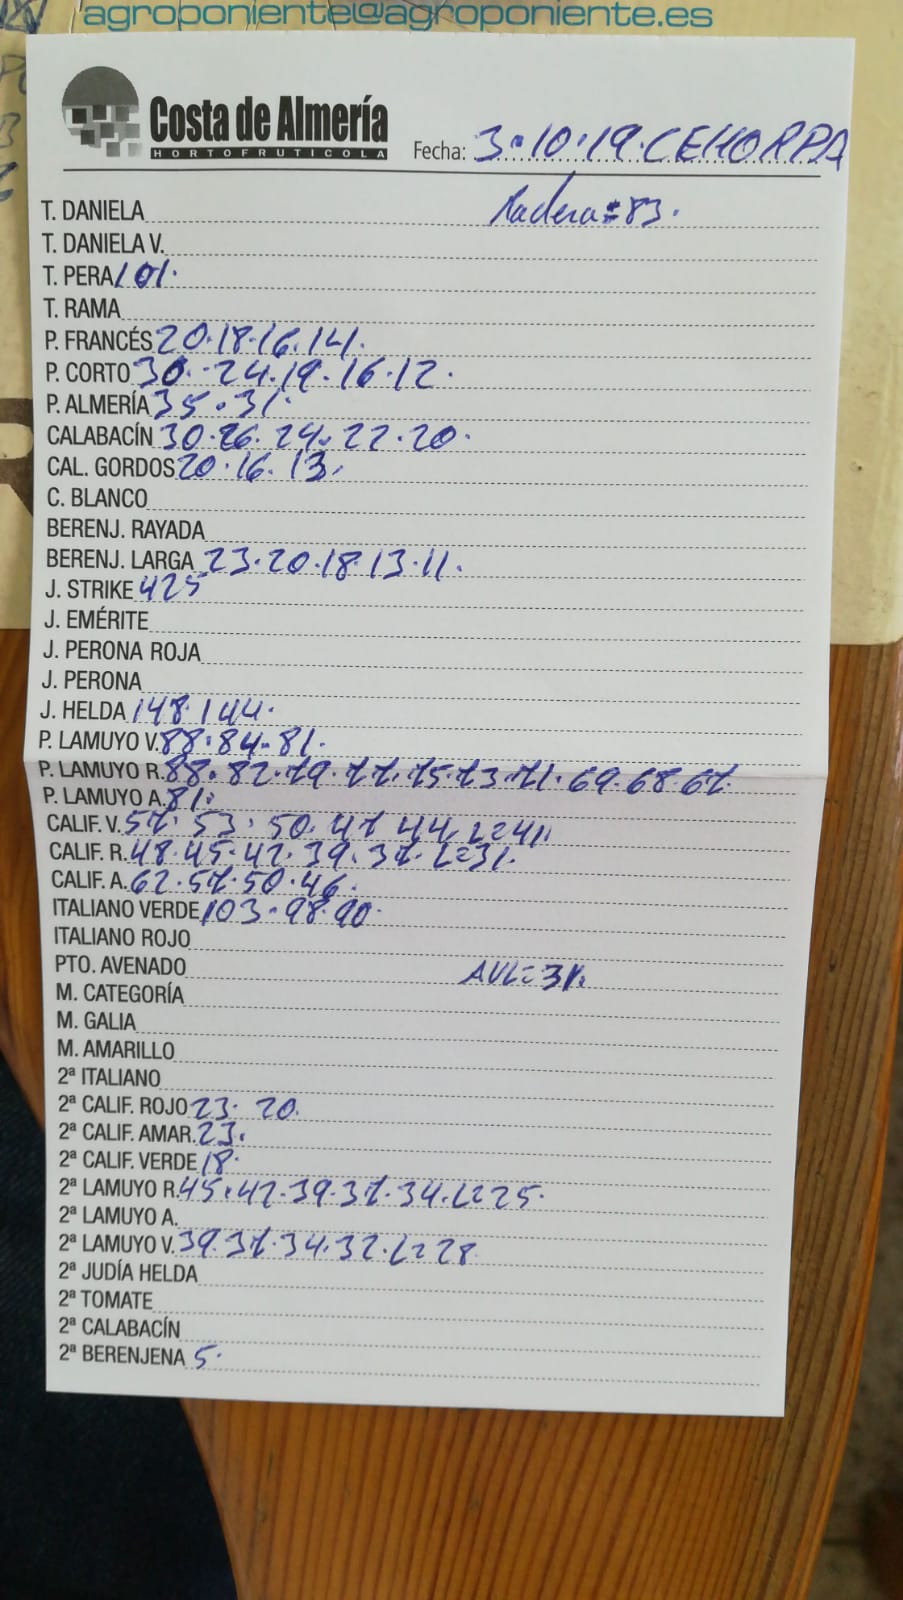 agroponiente@agroponiente.es
Costa de Almería
HORTOFRUTICOLA
Fecha: 3·10·19·CEHORPA
T. DANIELA =83.
T. DANIELA V.
T. PERA 101.
T. RAMA
P. FRANCÉS 20·18·16·14.
P. CORTO 30··24·19·16·12.
P. ALMERÍA 35·31.
CALABACÍN 30·26·24·22·20.
CAL. GORDOS 20·16·13.
C. BLANCO
BERENJ. RAYADA
BERENJ. LARGA 23·20·18·13·11.
J. STRIKE 425
J. EMÉRITE
J. PERONA ROJA
J. PERONA
J. HELDA 148·144.
P. LAMUYO V. 88·84·81.
P. LAMUYO R. 88·82·79·77·75·73·71·69·68·67.
P. LAMUYO A. 81.
CALIF. V. 57·53·50·47·44·L=41.
CALIF. R. 48·45·42·39·37·L=31.
CALIF. A. 62·57·50·46.
ITALIANO VERDE 103·98·90.
ITALIANO ROJO
PTO. AVENADO
M. CATEGORÍA
M. GALIA
M. AMARILLO
2ª ITALIANO
2ª CALIF. ROJO 23·20.
2ª CALIF. AMAR. 23.
2ª CALIF. VERDE 18.
2ª LAMUYO R. 45·42·39·37·34·L=25.
2ª LAMUYO A.
2ª LAMUYO V. 39·37·34·32·L=28
2ª JUDÍA HELDA
2ª TOMATE
2ª CALABACÍN
2ª BERENJENA 5.